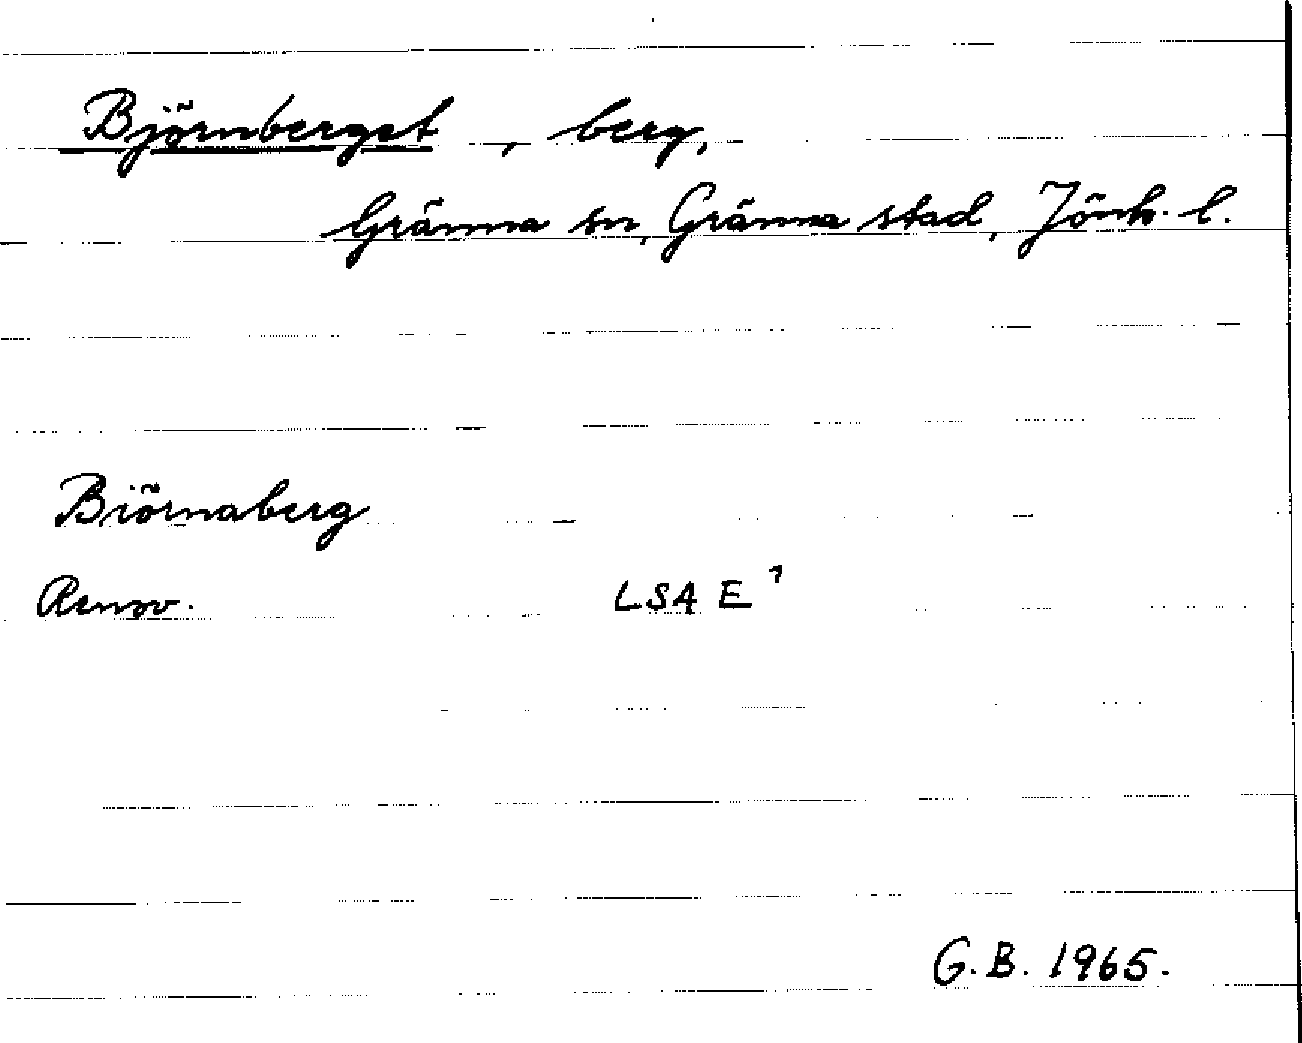 Björnberget, berg,
Gränna sn, Gränna stad, Jönk. l.
Biörnaberg
Renov. LSA E 1
G.B. 1965.